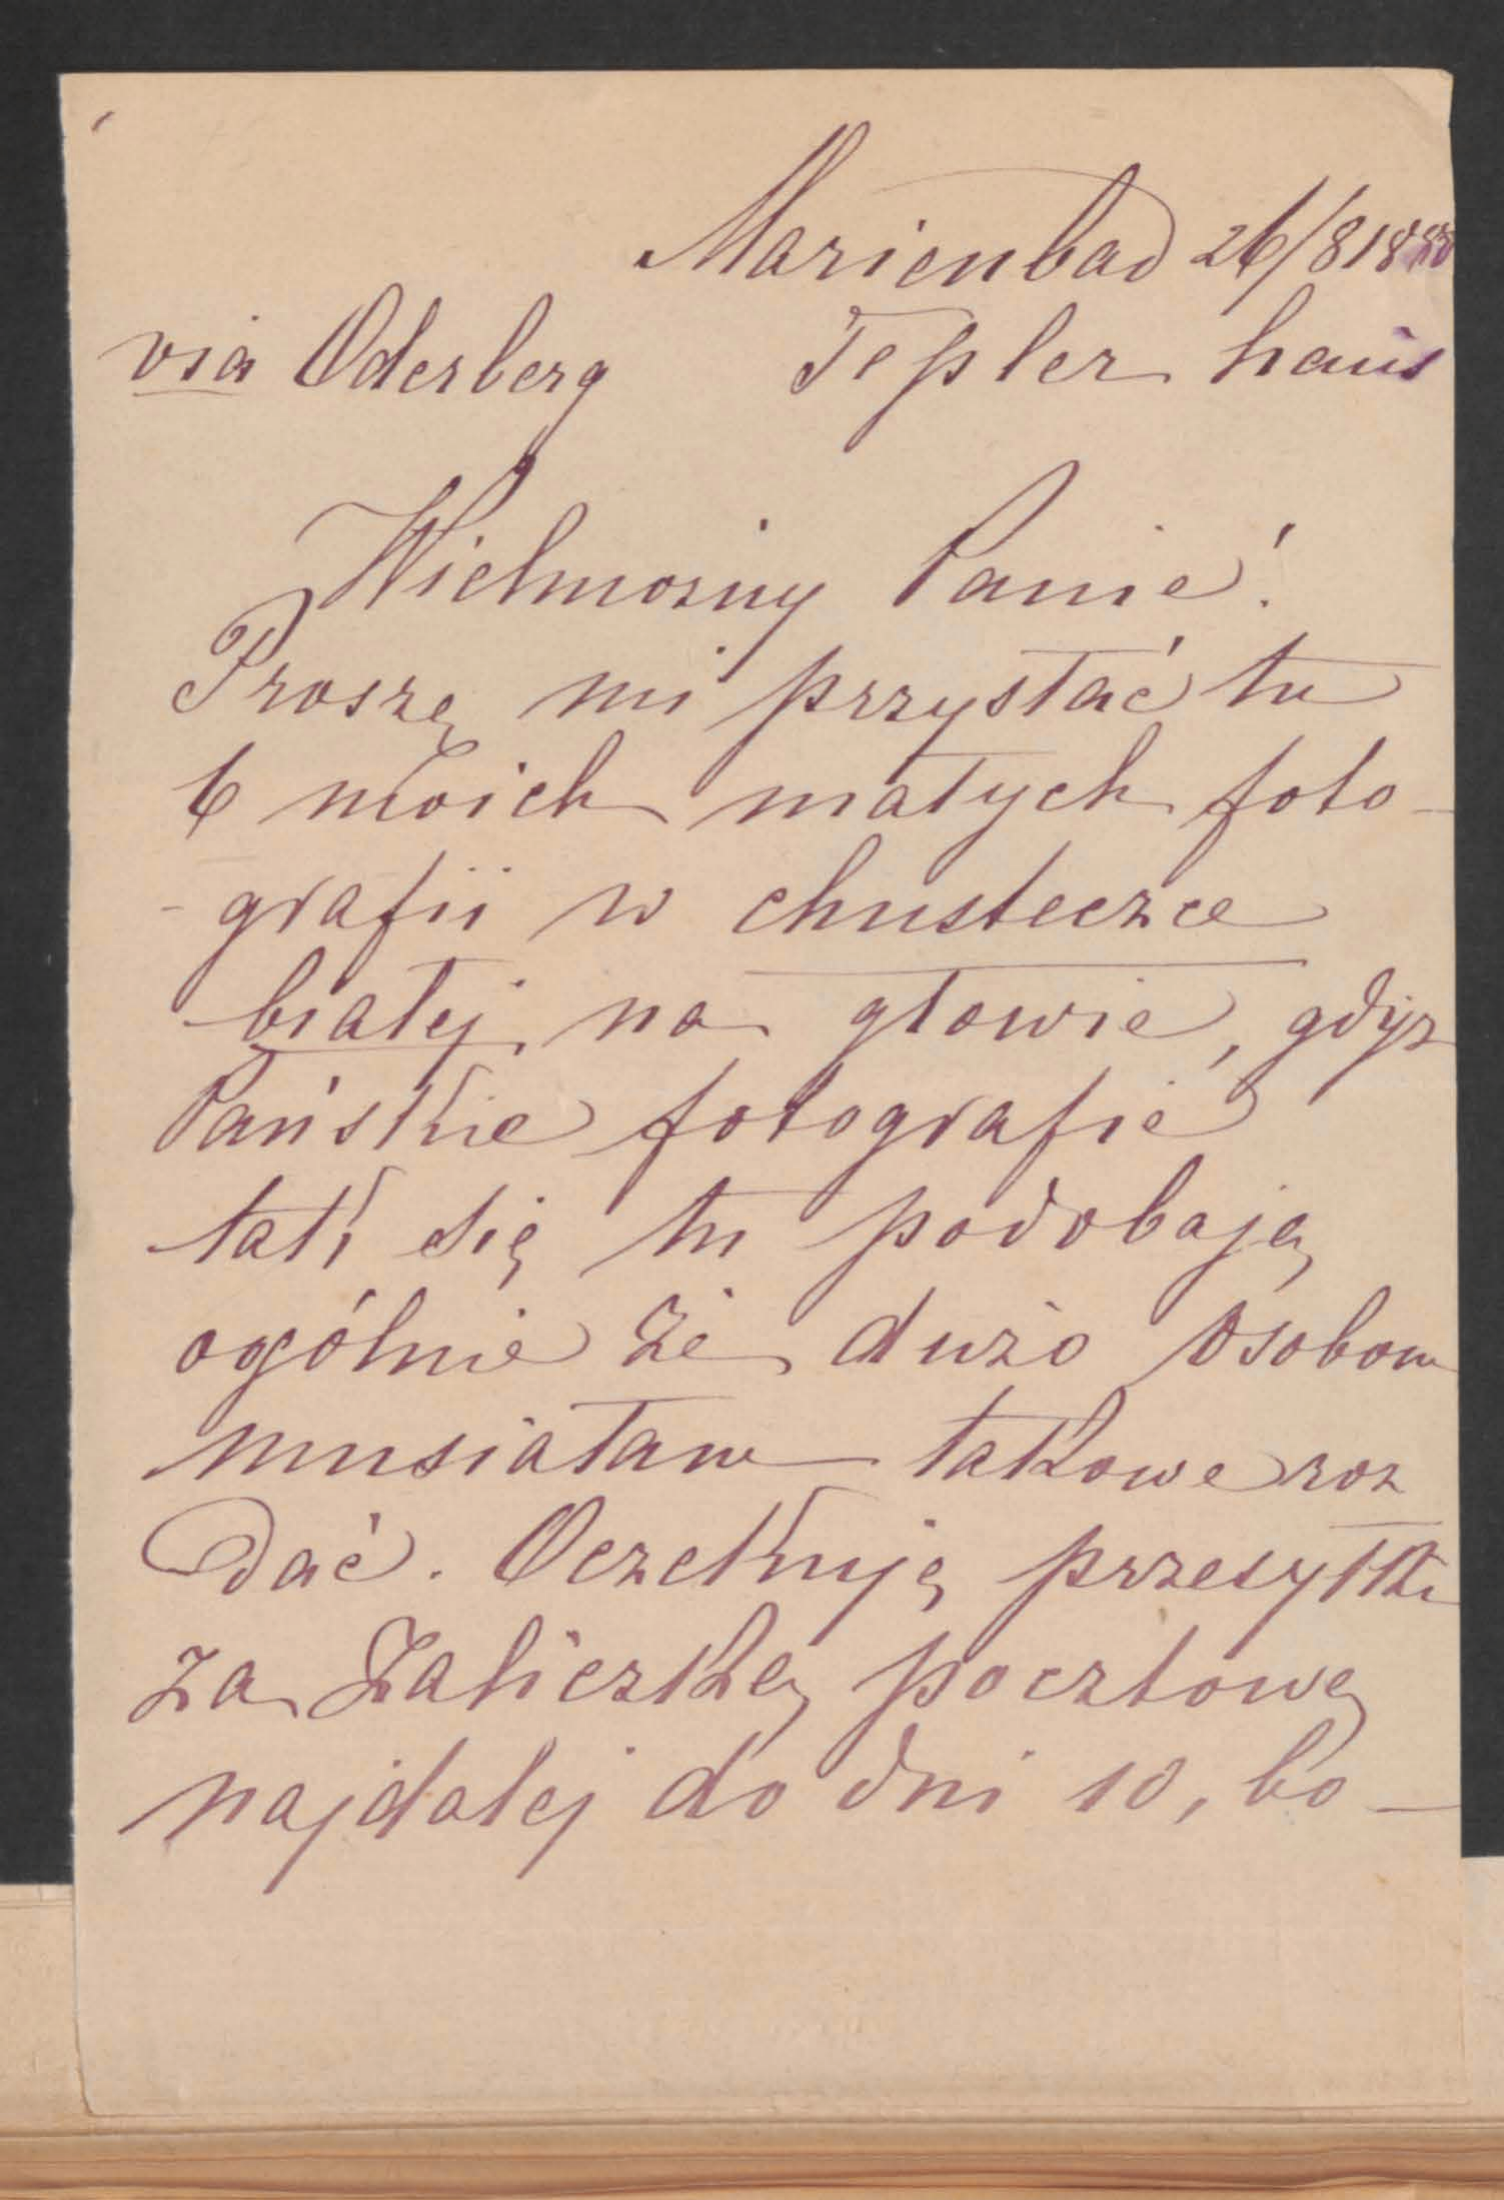 Marienbad 26/8 1888
via Oderberg Tepler haus
Wielmożny Panie!
Proszę mi przysłać tu
6 moich małych foto-
-grafii w chusteczce
białej na głowie, gdyż
Pańskie fotografie
tak się tu podobają
ogólnie że dużo osobom
musiałam takowe roz
dać. Oczekuję przesyłki
za zaliczką pocztową
najdalej do dni 10, bo-